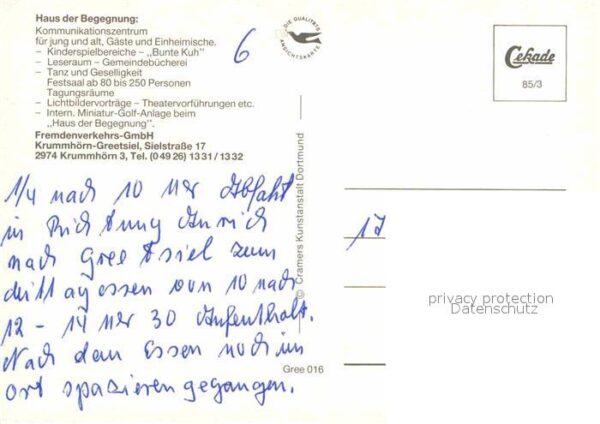 Haus der Begegnung:
Kommunikationszentrum
für jung und alt, Gäste und Einheimische.
– Kinderspielbereiche – „Bunte Kuh"
– Leseraum – Gemeindebücherei
– Tanz und Geselligkeit
Festsaal ab 80 bis 250 Personen
Tagungsräume
– Lichtbildervorträge – Theatervorführungen etc.
– Intern. Miniatur-Golf-Anlage beim
„Haus der Begegnung".
Fremdenverkehrs-GmbH
Krummhörn-Greetsiel, Sielstraße 17
2974 Krummhörn 3, Tel. (0 49 26) 13 31 / 13 32
6
DIE QUALITÄTS
ANSICHTSKARTE
Cekade
85/3
1/4 nach 10 Uhr Abfahrt
in Richtung Aurich
nach Greetsiel zum
Mittagessen von 10 nach
12 – 14 Uhr 30 Aufenthalt.
Nach dem Essen noch im
Ort spazieren gegangen.
© Cramers Kunstanstalt Dortmund
Gree 016
17
privacy protection
Datenschutz